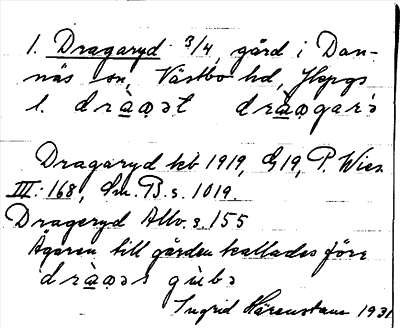 1. Dragaryd 3/4, gård i Dan-
näs sn, Västbo hd, Jkpgs
l. dràꭤət dràꭤgarə
Dragaryd kb 1919, G19, P. Wies.
III: 168, Sm. B. s. 1019.
Drageryd Allv. s. 155
Ägaren till gården kallades förr
dràꭤəs gubə
Ingrid Härenstam 1931